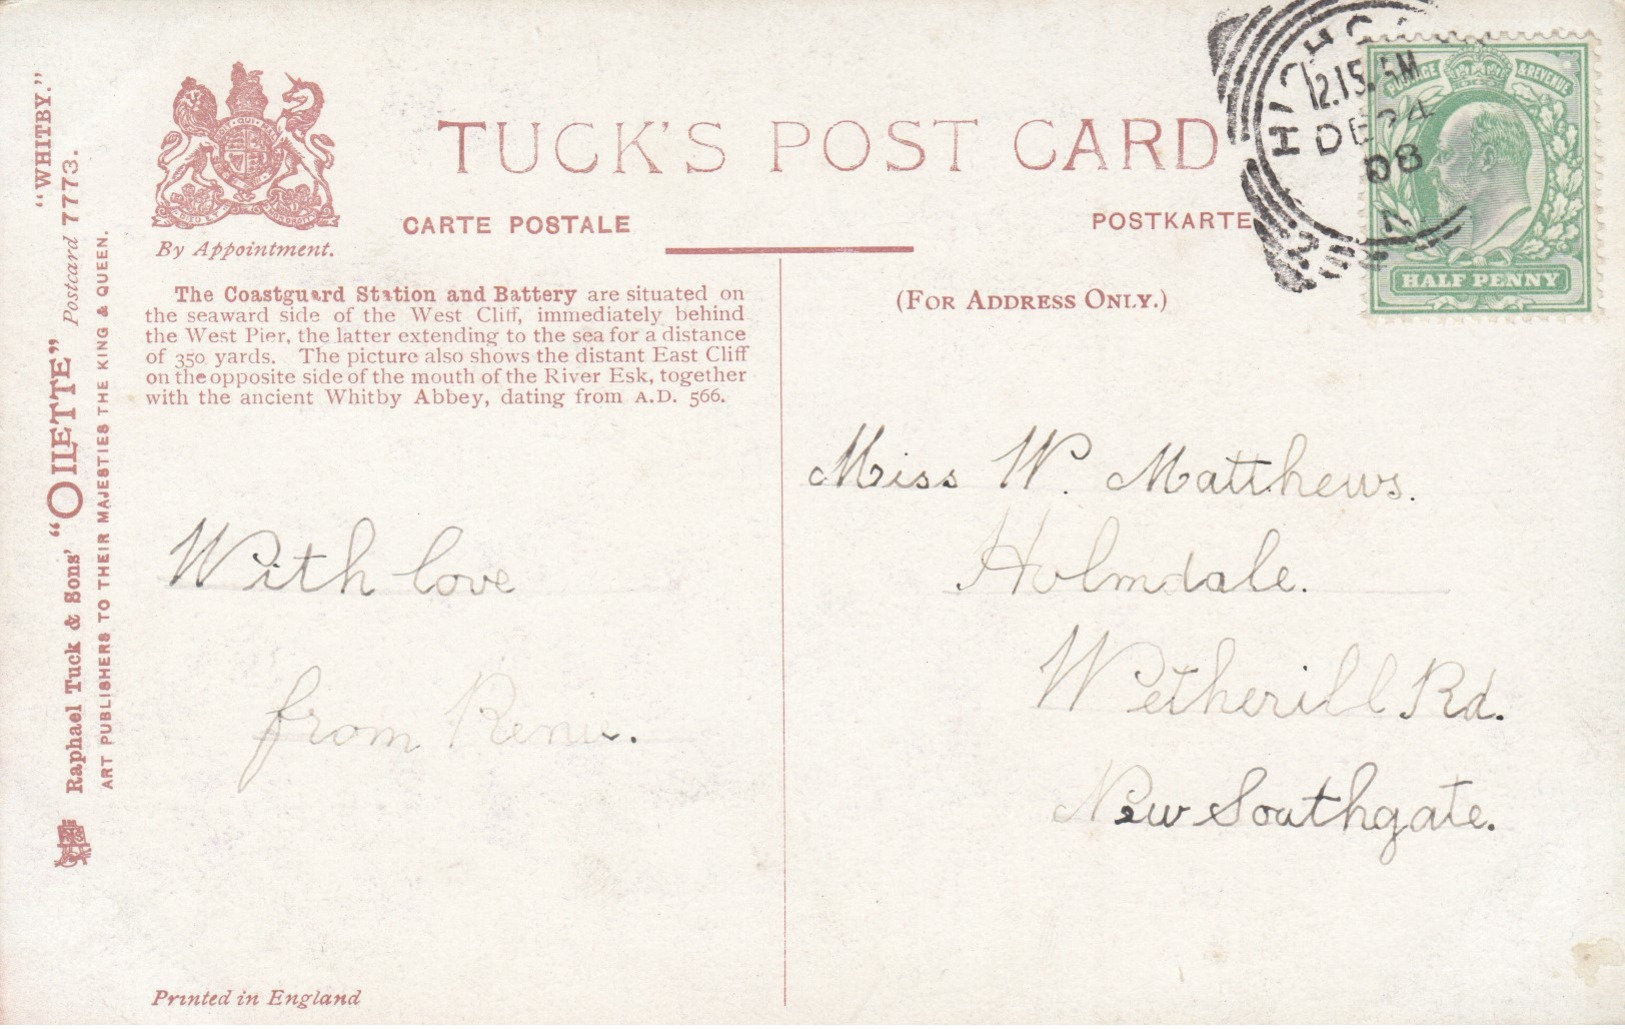 "WHITBY."
Postcard 7773.
Raphael Tuck & Sons' "OILETTE"
ART PUBLISHERS TO THEIR MAJESTIES THE KING & QUEEN.
By Appointment.
TUCK'S POST CARD
CARTE POSTALE
POSTKARTE
12.15. AM
DE 24
08
N
POSTAGE & REVENUE
HALF PENNY
The Coastguard Station and Battery are situated on
the seaward side of the West Cliff, immediately behind
the West Pier, the latter extending to the sea for a distance
of 350 yards. The picture also shows the distant East Cliff
on the opposite side of the mouth of the River Esk, together
with the ancient Whitby Abbey, dating from A.D. 566.
(FOR ADDRESS ONLY.)
With love
from Renie.
Miss W. Matthews.
Holmdale.
Wetherill Rd.
New Southgate.
Printed in England